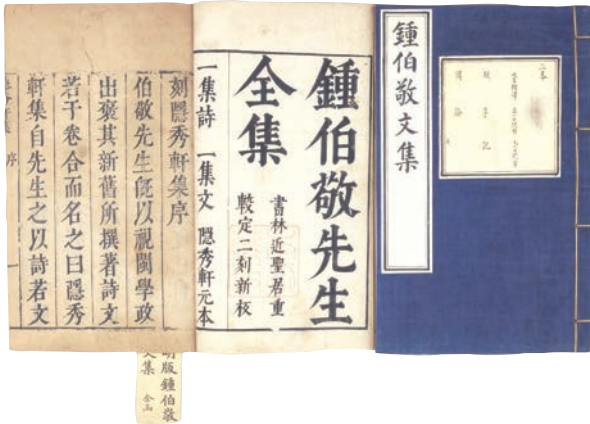 鍾伯敬文集
二卷
鍾伯敬先生
全集
書林近聖居重
較定二刻新板
一集詩 一集文 隱秀軒元本
刻隱秀軒集序
伯敬先生旣以視閩學政
出裒其新舊所撰著詩文
若干卷合而名之曰隱秀
軒集自先生之以詩若文
序
一
明版鍾伯敬
文集 全函